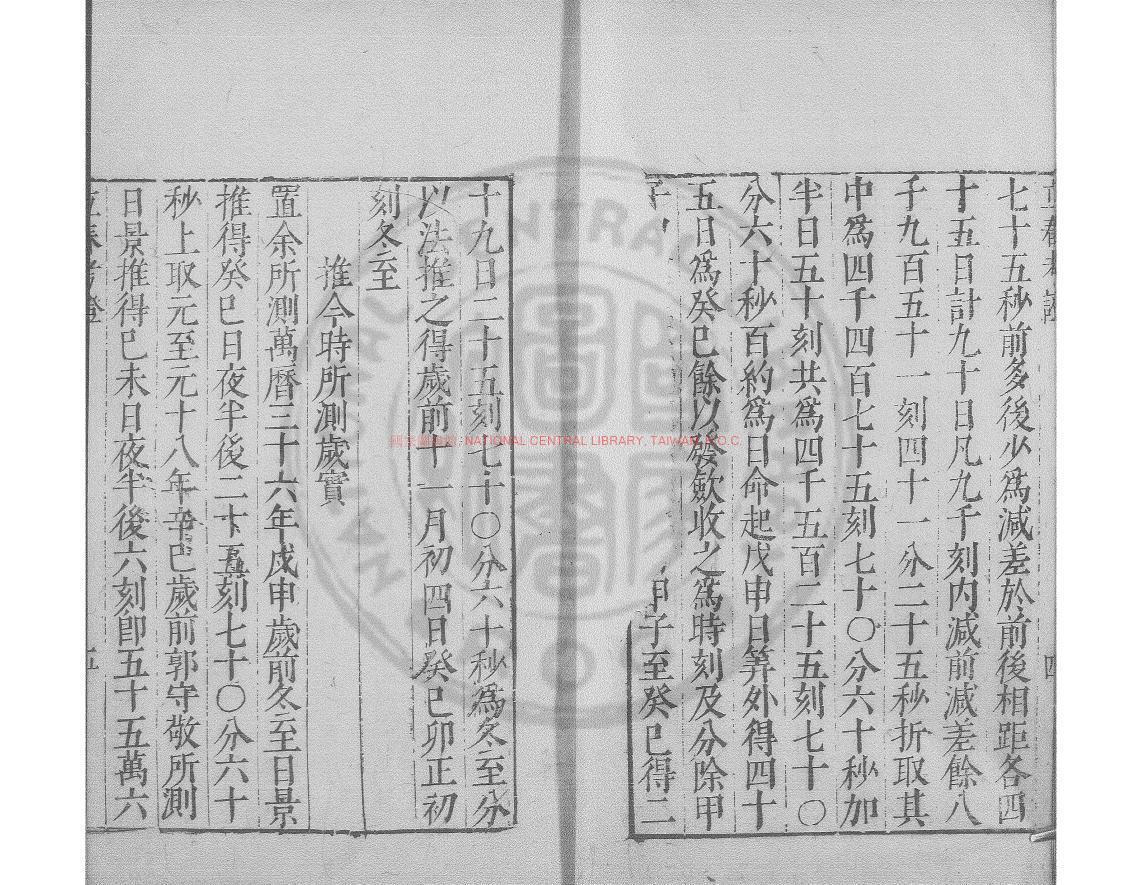 七十五秒前多後少爲減差於前後相距各四
十五日計九十日凡九千刻內減前減差餘八
千九百五十一刻四十一分二十五秒折取其
中爲四千四百七十五刻七十〇分六十秒加
半日五十刻共爲四千五百二十五刻七十〇
分六十秒百約爲日命起戊申日筭外得四十
五日爲癸巳餘以發斂收之爲時刻及分除甲
子至癸巳得二
四
十九日二十五刻七十〇分六十秒爲冬至分
以法推之得歲前十一月初四日癸巳卯正初
刻冬至
推今時所測歲實
置余所測萬曆三十六年戊申歲前冬至日景
推得癸巳日夜半後二十五刻七十〇分六十
秒上取元至元十八年辛巳歲前郭守敬所測
日景推得己未日夜半後六刻卽五十五萬六
五
國家圖書館, NATIONAL CENTRAL LIBRARY, TAIWAN, R.O.C.